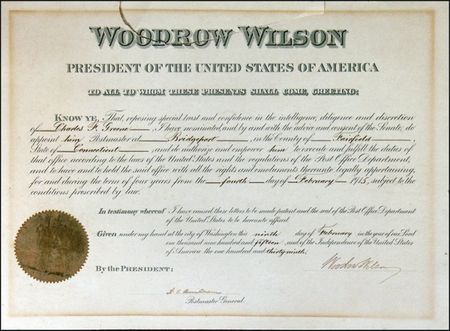 WOODROW WILSON
PRESIDENT OF THE UNITED STATES OF AMERICA
TO ALL TO WHOM THESE PRESENTS SHALL COME, GREETING:
KNOW YE, That, reposing special trust and confidence in the intelligence, diligence and discretion
of Charles F. Greene, I have nominated, and by and with the advice and consent of the Senate, do
appoint him Postmaster at Bridgeport, in the County of Fairfield
State of Connecticut, and do authorize and empower him to execute and fulfill the duties of
that office according to the laws of the United States and the regulations of the Post Office Department,
and to have and to hold the said office with all the rights and emoluments thereunto legally appertaining,
for and during the term of four years from the fourth day of February 1915, subject to the
conditions prescribed by law.
In testimony whereof I have caused these letters to be made patent and the seal of the Post Office Department
of the United States to be hereunto affixed.
Given under my hand at the city of Washington this ninth day of February in the year of our Lord
one thousand nine hundred and fifteen, and of the Independence of the United States
of America the one hundred and thirty ninth.
By the PRESIDENT:
Woodrow Wilson
Postmaster General.